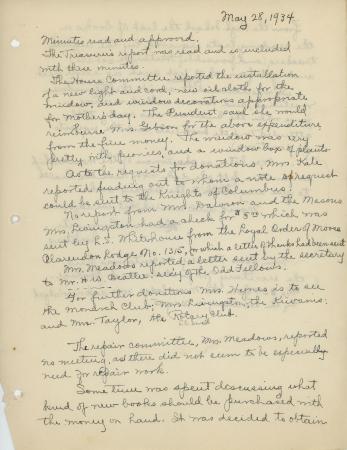 May 28, 1934
Minutes read and approved.
The Treasurer's report was read and is included
with these minutes.
The House Committee reported the installation
of a new light and cord, new oil cloth for the
window, and window decorations appropriate
for Mother's day. The President said she would
reimburse Mrs. Gibson for the above expenditure
from the fine money. The window was very
pretty with peonies, and a window box of plants.
As to the requests for donations, Mrs. Kale
reported finding out to whom a note of request
could be sent to the Knights of Columbus.
No report from Mrs. and the Masons
Mrs. Livingston had a check for $5.00 which was
sent by L.S. Whitehouse from the Royal Order of Moose
Clarendon Lodge No. 1315, for which a letter of thanks had been sent
Mrs. Meadows reported a letter sent by the secretary
to Mr. Beattie, sec'y of the Odd Fellows.
For further donations Mrs. Himes is to see
the Monarch Club; Mrs. Livingston, the Kiwanis;
and Mrs. Taylor, the Rotary Club.
The repair committee, Mrs. Meadows, reported
no meeting, as there did not seem to be especially
need for repair work.
Some time was spent discussing what
kind of new books should be purchased with
the money on hand. It was decided to obtain